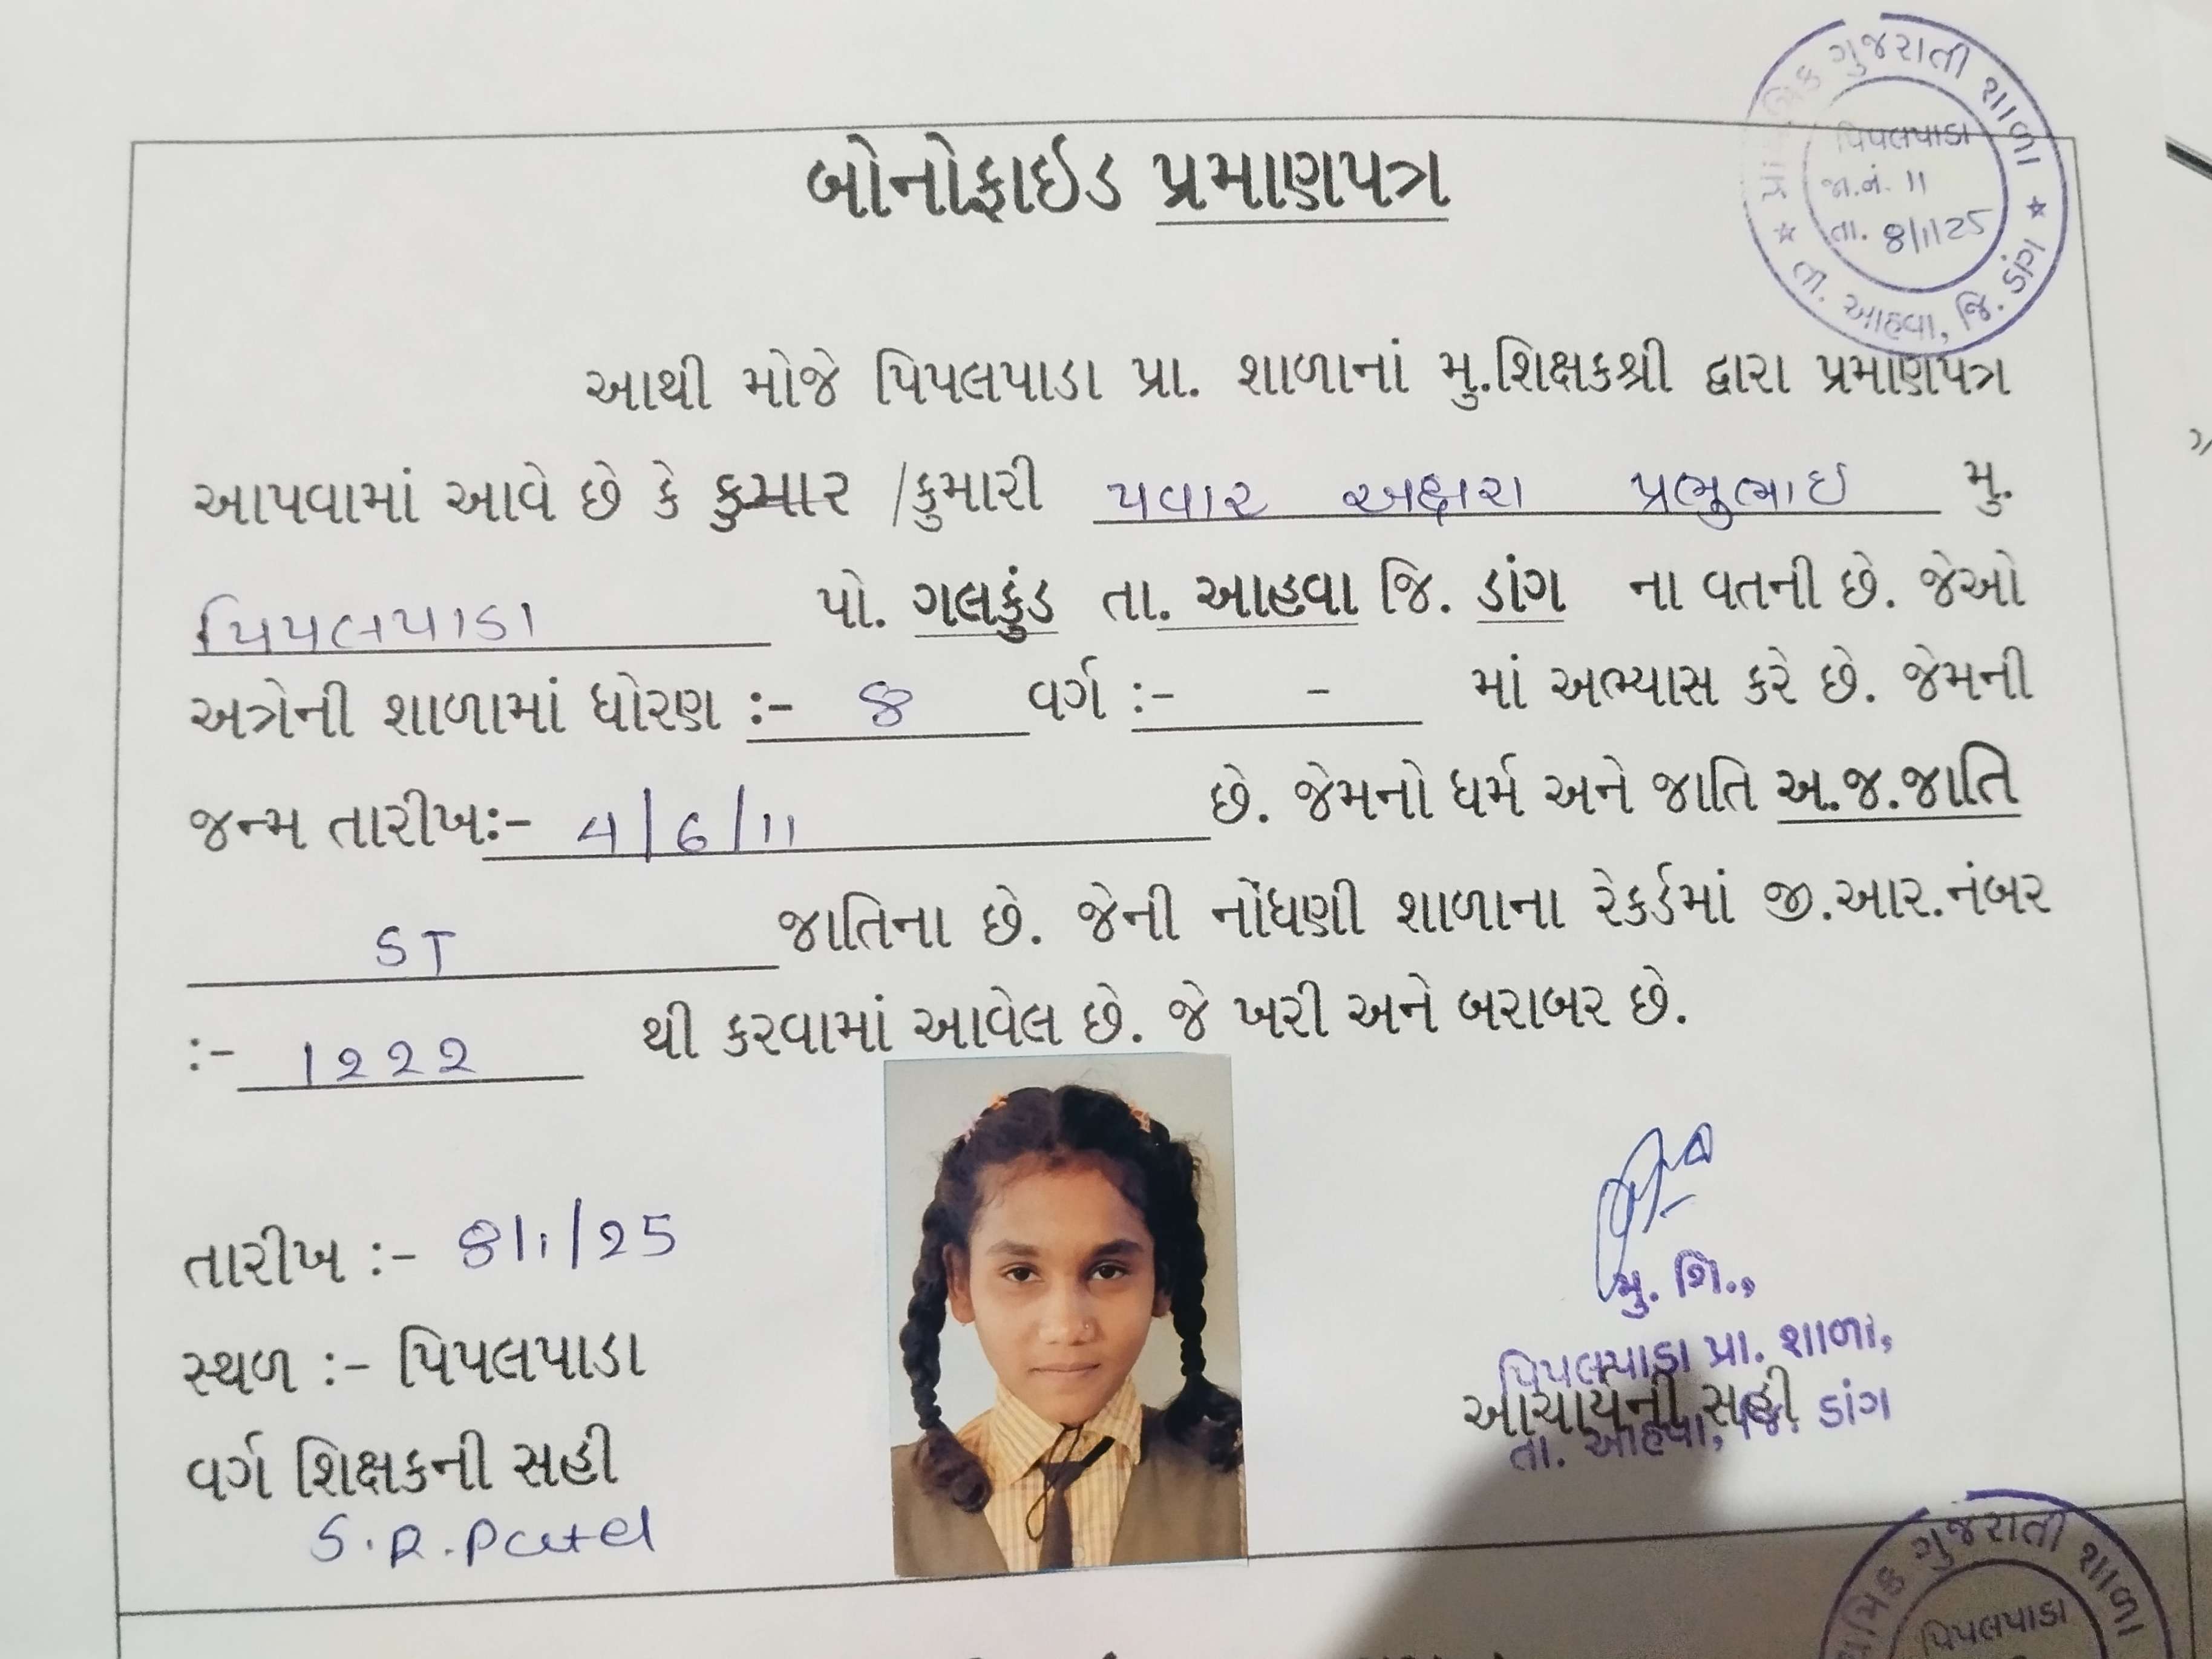 પ્રાથમિક ગુજરાતી શાળા
પિપલપાડા
જા.નં. 11
તા. 8/1/25
★ તા. આહવા, જિ. ડાંગ ★
બોનોફાઈડ પ્રમાણપત્ર
આથી મોજે પિપલપાડા પ્રા. શાળાનાં મુ.શિક્ષકશ્રી દ્વારા પ્રમાણપત્ર
આપવામાં આવે છે કે કુમાર /કુમારી પવાર અક્ષરા પ્રભુભાઈ મુ.
પિપલપાડા પો. ગલકુંડ તા. આહવા જિ. ડાંગ ના વતની છે. જેઓ
અત્રેની શાળામાં ધોરણ :- 8 વર્ગ :- - માં અભ્યાસ કરે છે. જેમની
જન્મ તારીખ:- 4/6/11 છે. જેમનો ધર્મ અને જાતિ અ.જ.જાતિ
ST જાતિના છે. જેની નોંધણી શાળાના રેકર્ડમાં જી.આર.નંબર
:- 1222 થી કરવામાં આવેલ છે. જે ખરી અને બરાબર છે.
તારીખ :- 8/1/25
સ્થળ :- પિપલપાડા
વર્ગ શિક્ષકની સહી
S.R.Patel
મુ. શિ.,
પિપલપાડા પ્રા. શાળા,
આચાર્યની સહી
તા. આહવા, જિ. ડાંગ
ગુજરાતી શાળા
પિપલપાડા